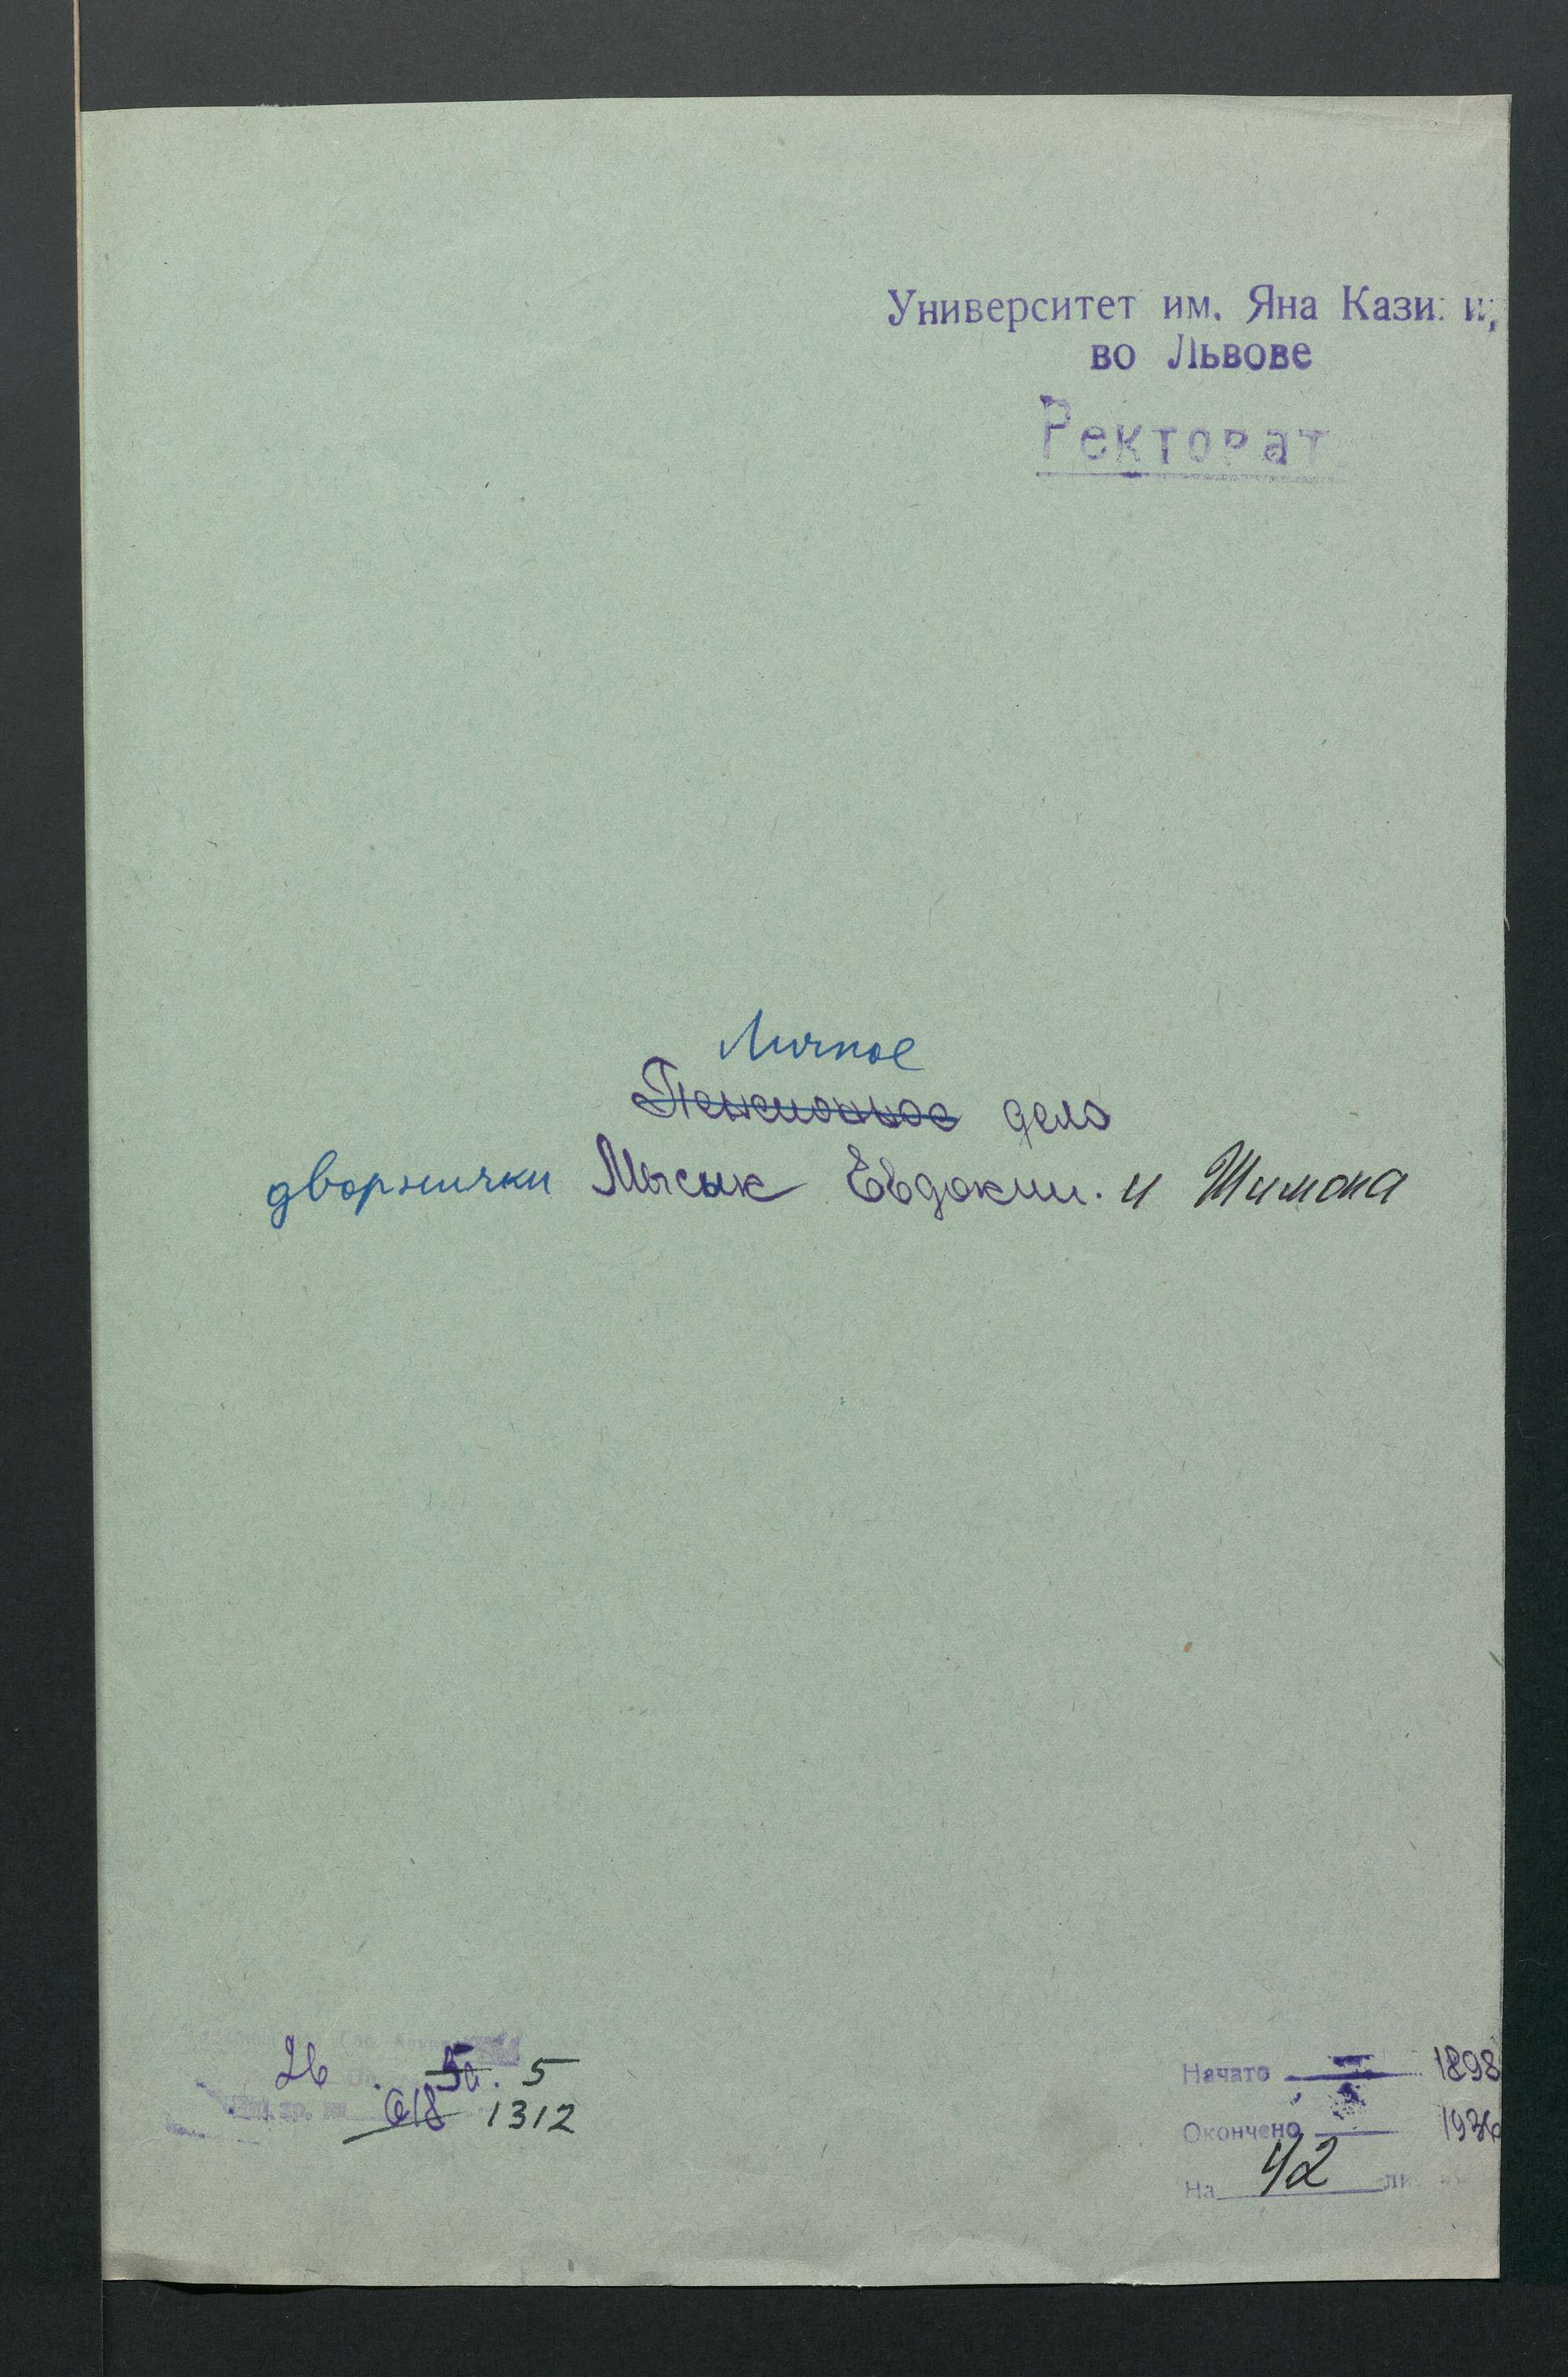 Университет им. Яна Кази
во Львове
Ректорат
Личное
Пенсионное дело
дворнички Мысык Евдокии. и Шимона
26 5а. 5
618 1312
Начато 1898
Окончено 1936
На 42